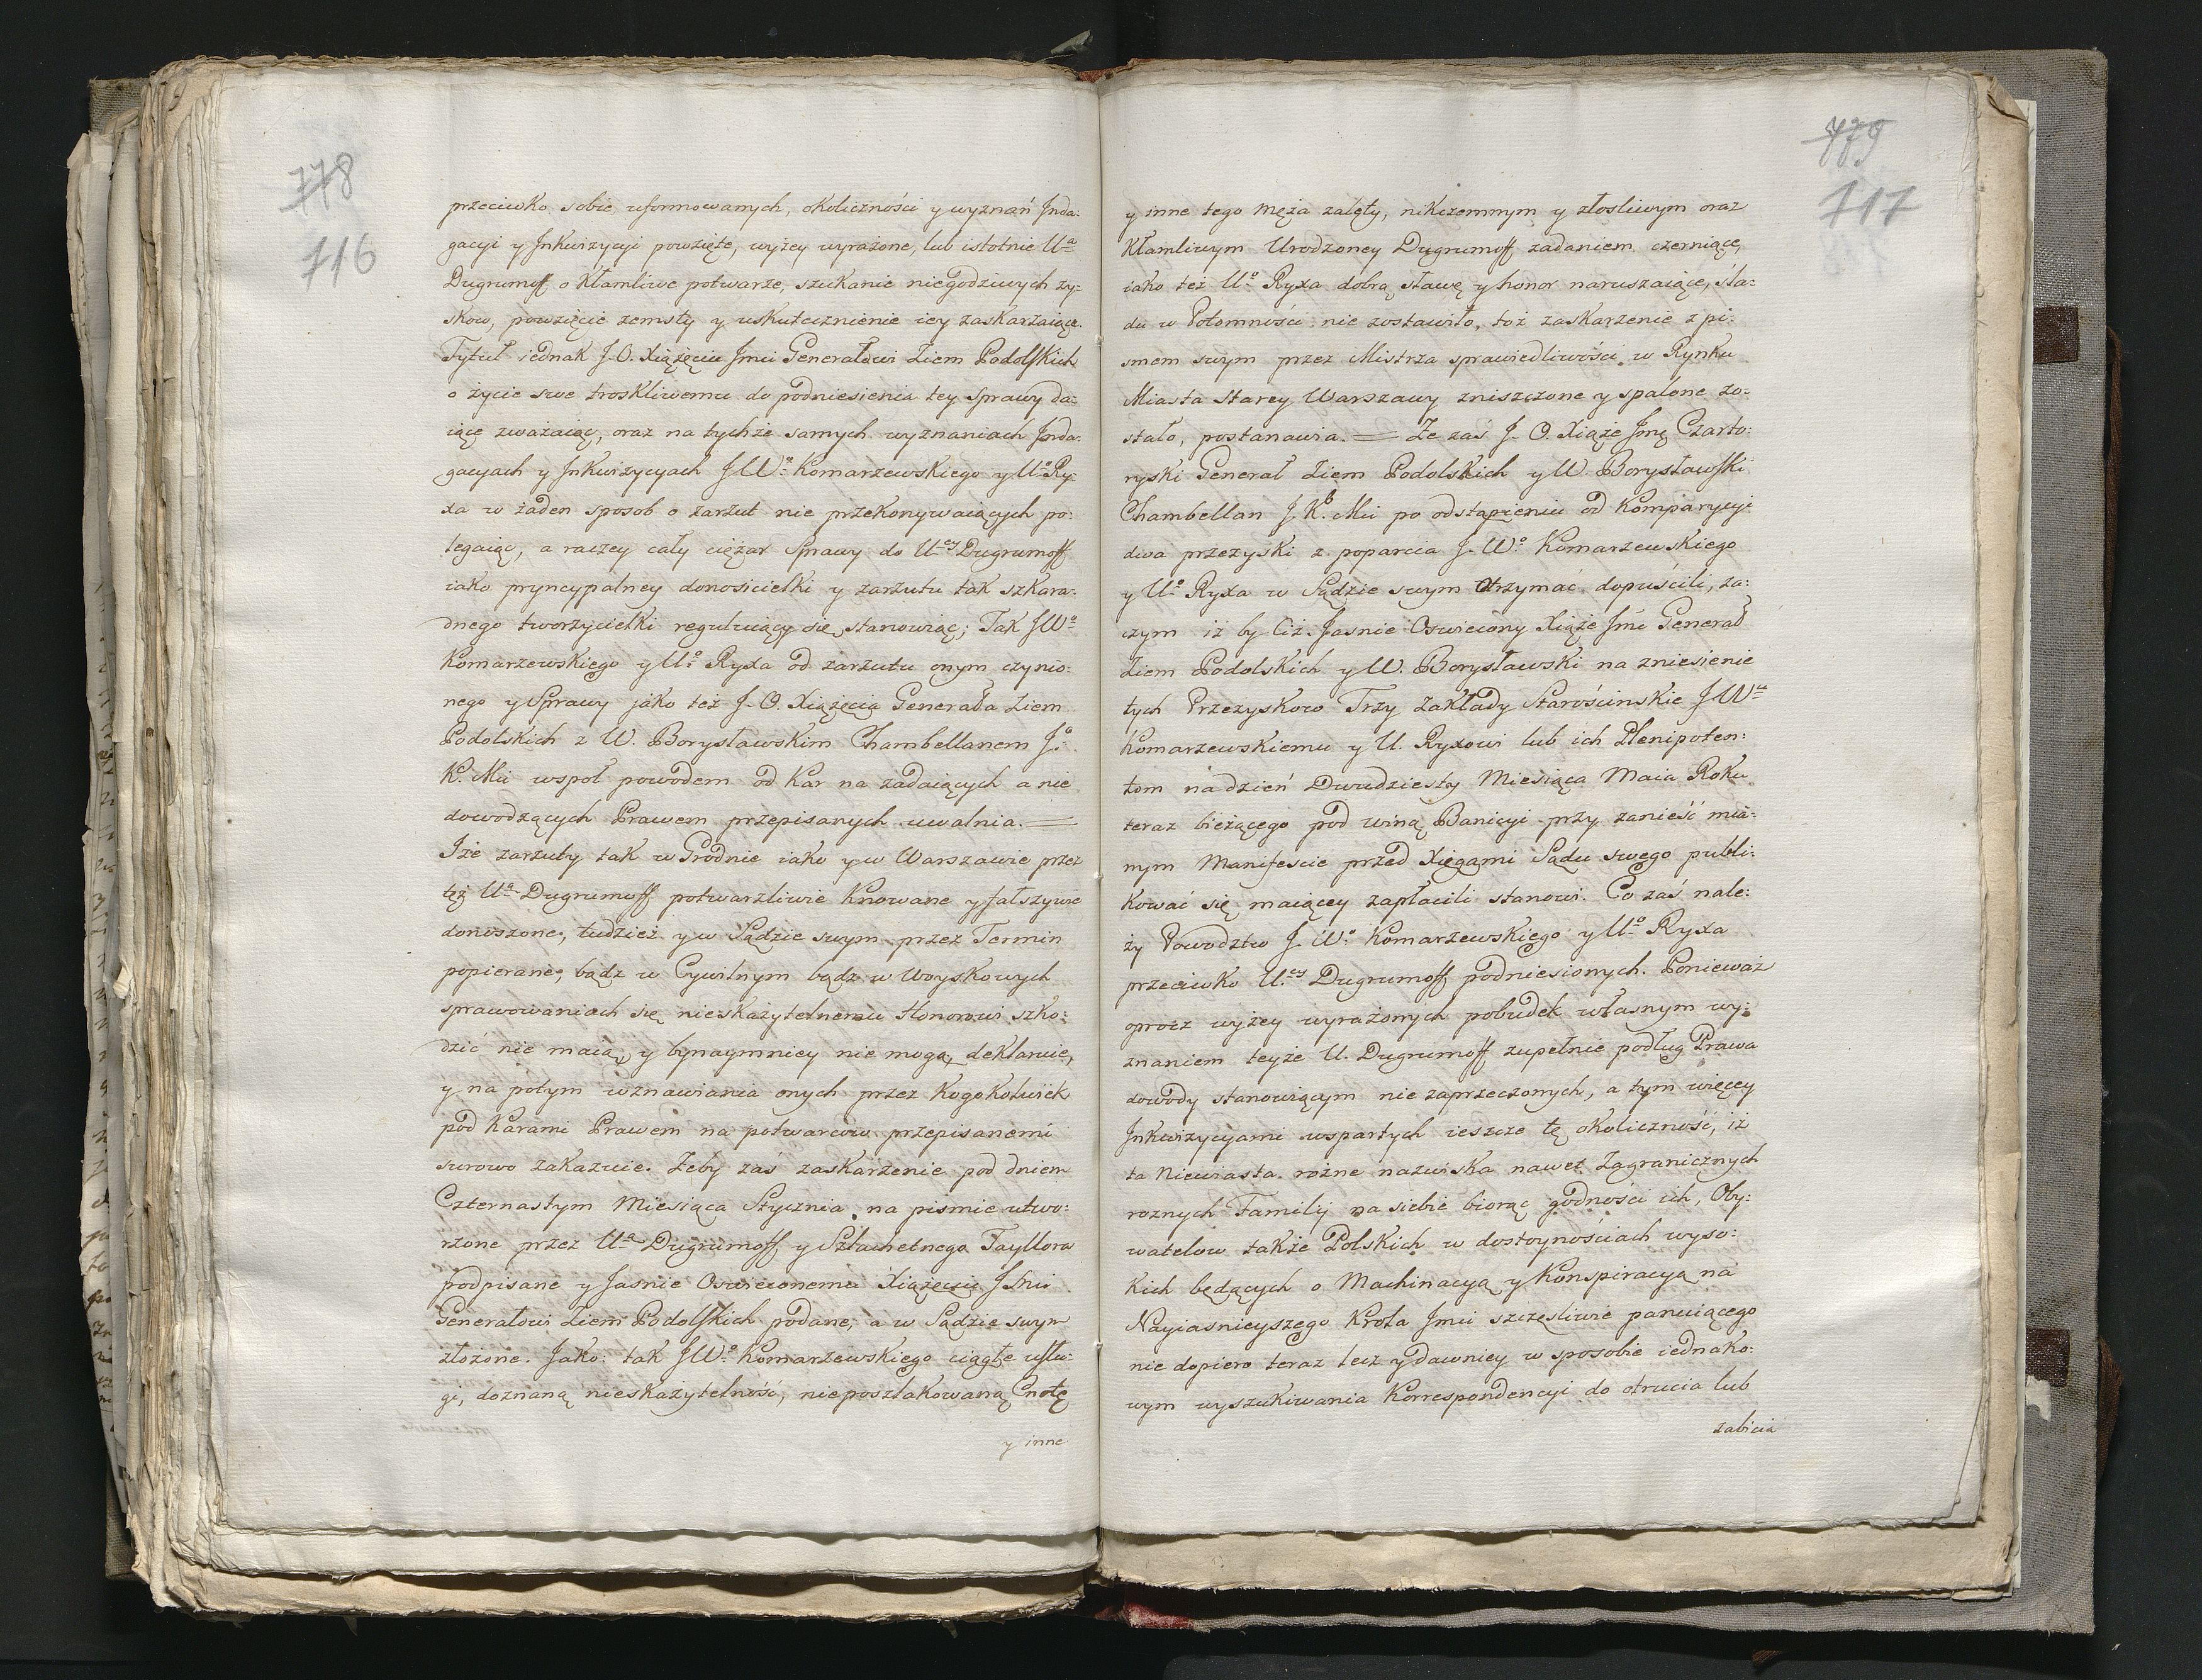 778
716
przeciwko sobie uformowanych, okoliczności y wyznań Jnda:
gacyi y Jnkwizycyi powzięte, wyżey wyrażone, lub istotnie U:a
Dugrumoff o Kłamliwe potwarze, szukanie niegodziwych zy:
skow, powzięcie zemsty y uskutecznienie iey zaskarzaiące.
Tytuł iednak J. O. Xiążęciu Jmci Generałowi Ziem Podolskich
o życie swe troskliwemu do podniesienia tey Sprawy da:
iącę zważaiąc, oraz na tychże samych wyznaniach Jnda:
gacyach y Jnkwizycyach JW:o Komarzewskiego y U:o Ry:
xa w żaden sposob o zarzut nie przekonywaiących po:
legaiąc, a raczey cały ciężar Sprawy do U:ey Dugrumoff
iako pryncypalney donosicielki y zarzutu tak szkara:
dnego tworzycielki reguluiący się stanowiąc; Tak JW:o
Komarzewskiego y U:o Ryxa od zarzutu onym czynio:
nego y Sprawy jako też J. O. Xiążęcia Generała Ziem
Podolskich z W. Borysławskim Chambellanem J:o
K. Mci wspoł powodem od Kar na zadaiących a nie
dowodzących Prawem przepisanych uwalnia. =
Jże zarzuty tak w Grodnie iako y w Warszawie przez
tęż U:ą Dugrumoff potwarzliwie Knowane y fałszywie
donoszone, tudzież y w Sądzie swym przez Termin
popierane, bądz w Cywilnym bądz w Woyskowych
sprawowaniach się nieskazytelnemu Honorowi szko:
dzić nie maią, y bynaymniey nie mogą, deklaruie,
y na potym wznawiania onych przez Kogokolwiek
pod Karami Prawem na potwarcow przepisanemi
surowo zakazuie. Żeby zaś zaskarżenie pod dniem
Czternastym Miesiąca Stycznia na pismie utwo:
rzone przez U:ą Dugrumoff y Szlachetnego Tayllora
podpisane y Jasnie Oswieconemu Xiążęciu Jmci
Generałowi Ziem Podolskich podane, a w Sądzie swym
złożone. Jako: tak JW:o Komarzewskiego ciągłe usłu:
gi, doznaną nieskazytelność, nieposzlakowaną Cnotę
y inne
779
717
y inne tego męża zalęty, nikczemnym y złosliwym oraz
Kłamliwym Urodzoney Dugrumoff zadaniem czerniące,
iako też U:o Ryxa dobrą sławę y honor naruszaiące, śla:
du w Potomności nie zostawiło, toż zaskarzenie z pi:
smem swym przez Mistrza sprawiedliwości w Rynku
Miasta Starey Warszawy zniszczone y spalone zo:
stało, postanawia. = Ze zaś J. O. Xiąże Jmę Czarto:
ryski Generał Ziem Podolskich y W. Borysławski
Chambellan J. K. Mci po odstąpieniu od Komparycyi
dwa przezyski z poparcia J. W:o Komarzewskiego
y U:o Ryxa w Sądzie swym Otrzymać dopuścili, za:
czym iż by Ciż Jasnie Oswiecony Xiąże Jmć Generał
Ziem Podolskich y W. Borysławski na zniesienie
tych Przezyskow Trzy zakłady Starościnskie JW:u
Komarzewskiemu y U. Ryxowi lub ich Plenipoten:
tom na dzień Dwudziesty Miesiąca Maia Roku
teraz bieżącego pod winą Banicyi przy zanieść mia:
nym Manifescie przed Xięgami Sądu swego publi:
kować się maiącey zapłacili stanowi. Co zaś nale:
ży Powodztw J. W:o Komarzewskiego y U:o Ryxa
przeciwko U:ey Dugrumoff podniesionych. Ponieważ
oprocz wyżey wyrażonych pobudek własnym wy:
znaniem teyże U. Dugrumoff zupełnie podług Prawa
dowody stanowiącym nie zaprzeczonych, a tym więcey
Jnkwizycyami wspartych ieszcze tę okoliczność, iż
ta Niewiasta rożne nazwiska nawet Zagranicznych
roznych Familij na siebie biorąc godności ich, Oby:
watelow także Polskich w dostoynościach wyso:
kich będących o Machinacyą y Konspiracyą na
Nayiasnieyszego Krola Jmci szczęsliwie panuiącego
nie dopiero teraz lecz y dawniey w sposobie iednako:
wym wyszukiwania Korrespondencyi do otrucia lub
zabicia